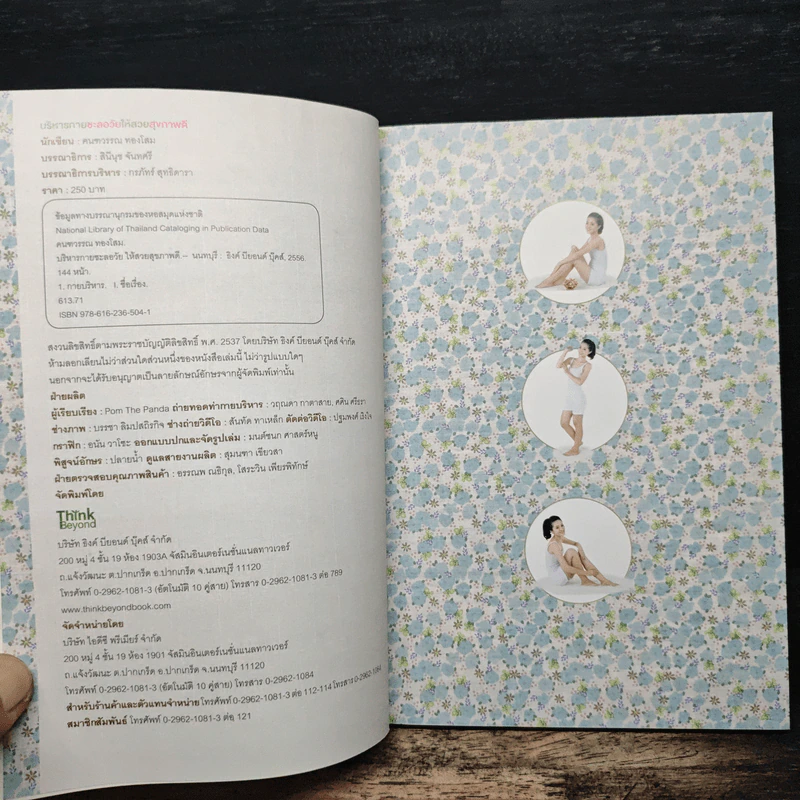 บริหารกายชะลอวัยให้สวยสุขภาพดี
นักเขียน : คนฑวรรณ ทองโสม
บรรณาธิการ : สินีนุช จันทศรี
บรรณาธิการบริหาร : กรภัทร์ สุทธิดารา
ราคา : 250 บาท
ข้อมูลทางบรรณานุกรมของหอสมุดแห่งชาติ
National Library of Thailand Cataloging in Publication Data
คนฑวรรณ ทองโสม.
บริหารกายชะลอวัย ให้สวยสุขภาพดี -- นนทบุรี : ธิงค์ บียอนด์ บุ๊คส์, 2556.
144 หน้า.
1. กายบริหาร. I. ชื่อเรื่อง.
613.71
ISBN 978-616-236-504-1
สงวนลิขสิทธิ์ตามพระราชบัญญัติลิขสิทธิ์ พ.ศ. 2537 โดยบริษัท ธิงค์ บียอนด์ บุ๊คส์ จำกัด
ห้ามลอกเลียนไม่ว่าส่วนใดส่วนหนึ่งของหนังสือเล่มนี้ ไม่ว่ารูปแบบใดๆ
นอกจากจะได้รับอนุญาตเป็นลายลักษณ์อักษรจากผู้จัดพิมพ์เท่านั้น
ฝ่ายผลิต
ผู้เรียบเรียง : Pom The Panda ถ่ายทอดท่ากายบริหาร : วฤณดา กาตาสาย, ศศิน ศรีธรา
ช่างภาพ : บรรชา ลิมปสถิรกิจ ช่างถ่ายวิดีโอ : สันทัด ทาเหล็ก ตัดต่อวิดีโอ : ปฐมพงศ์
กราฟิก : อนัน วาโซะ ออกแบบปกและจัดรูปเล่ม : มนต์ชนก ศาสตร์หนู
พิสูจน์อักษร : ปลายน้ำ ดูแลสายงานผลิต : สุมนฑา เขียวสา
ฝ่ายตรวจสอบคุณภาพสินค้า : อรรณพ ณธิกุล, โสระวิน เพียรพิทักษ์
จัดพิมพ์โดย
Think
Beyond
บริษัท ธิงค์ บียอนด์ บุ๊คส์ จำกัด
200 หมู่ 4 ชั้น 19 ห้อง 1903A จัสมินอินเตอร์เนชั่นแนลทาวเวอร์
ถ.แจ้งวัฒนะ ต.ปากเกร็ด อ.ปากเกร็ด จ.นนทบุรี 11120
โทรศัพท์ 0-2962-1081-3 (อัตโนมัติ 10 คู่สาย) โทรสาร 0-2962-1081-3 ต่อ 789
www.thinkbeyondbook.com
จัดจำหน่ายโดย
บริษัท ไอดีซี พรีเมียร์ จำกัด
200 หมู่ 4 ชั้น 19 ห้อง 1901 จัสมินอินเตอร์เนชั่นแนลทาวเวอร์
ถ.แจ้งวัฒนะ ต.ปากเกร็ด อ.ปากเกร็ด จ.นนทบุรี 11120
โทรศัพท์ 0-2962-1081-3 (อัตโนมัติ 10 คู่สาย) โทรสาร 0-2962-1084
สำหรับร้านค้าและตัวแทนจำหน่าย โทรศัพท์ 0-2962-1081-3 ต่อ 112-114 โทรสาร
สมาชิกสัมพันธ์ โทรศัพท์ 0-2962-1081-3 ต่อ 121